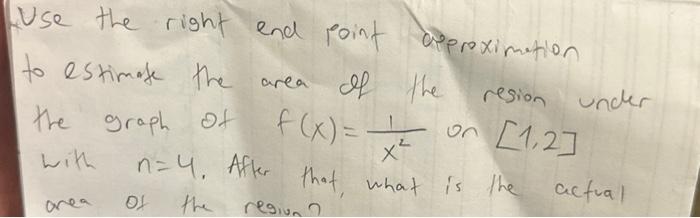 Use the right end point approximation
to estimate the area of the region under
the graph of f(x) = 1/x² on [1,2]
with n=4. After that, what is the actual
area of the region?